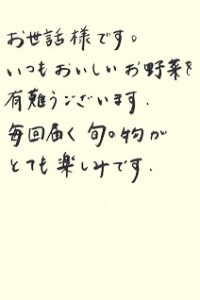 お世話様です。
いつもおいしいお野菜を
有難うございます.
毎回届く旬の物が
とても楽しみです.